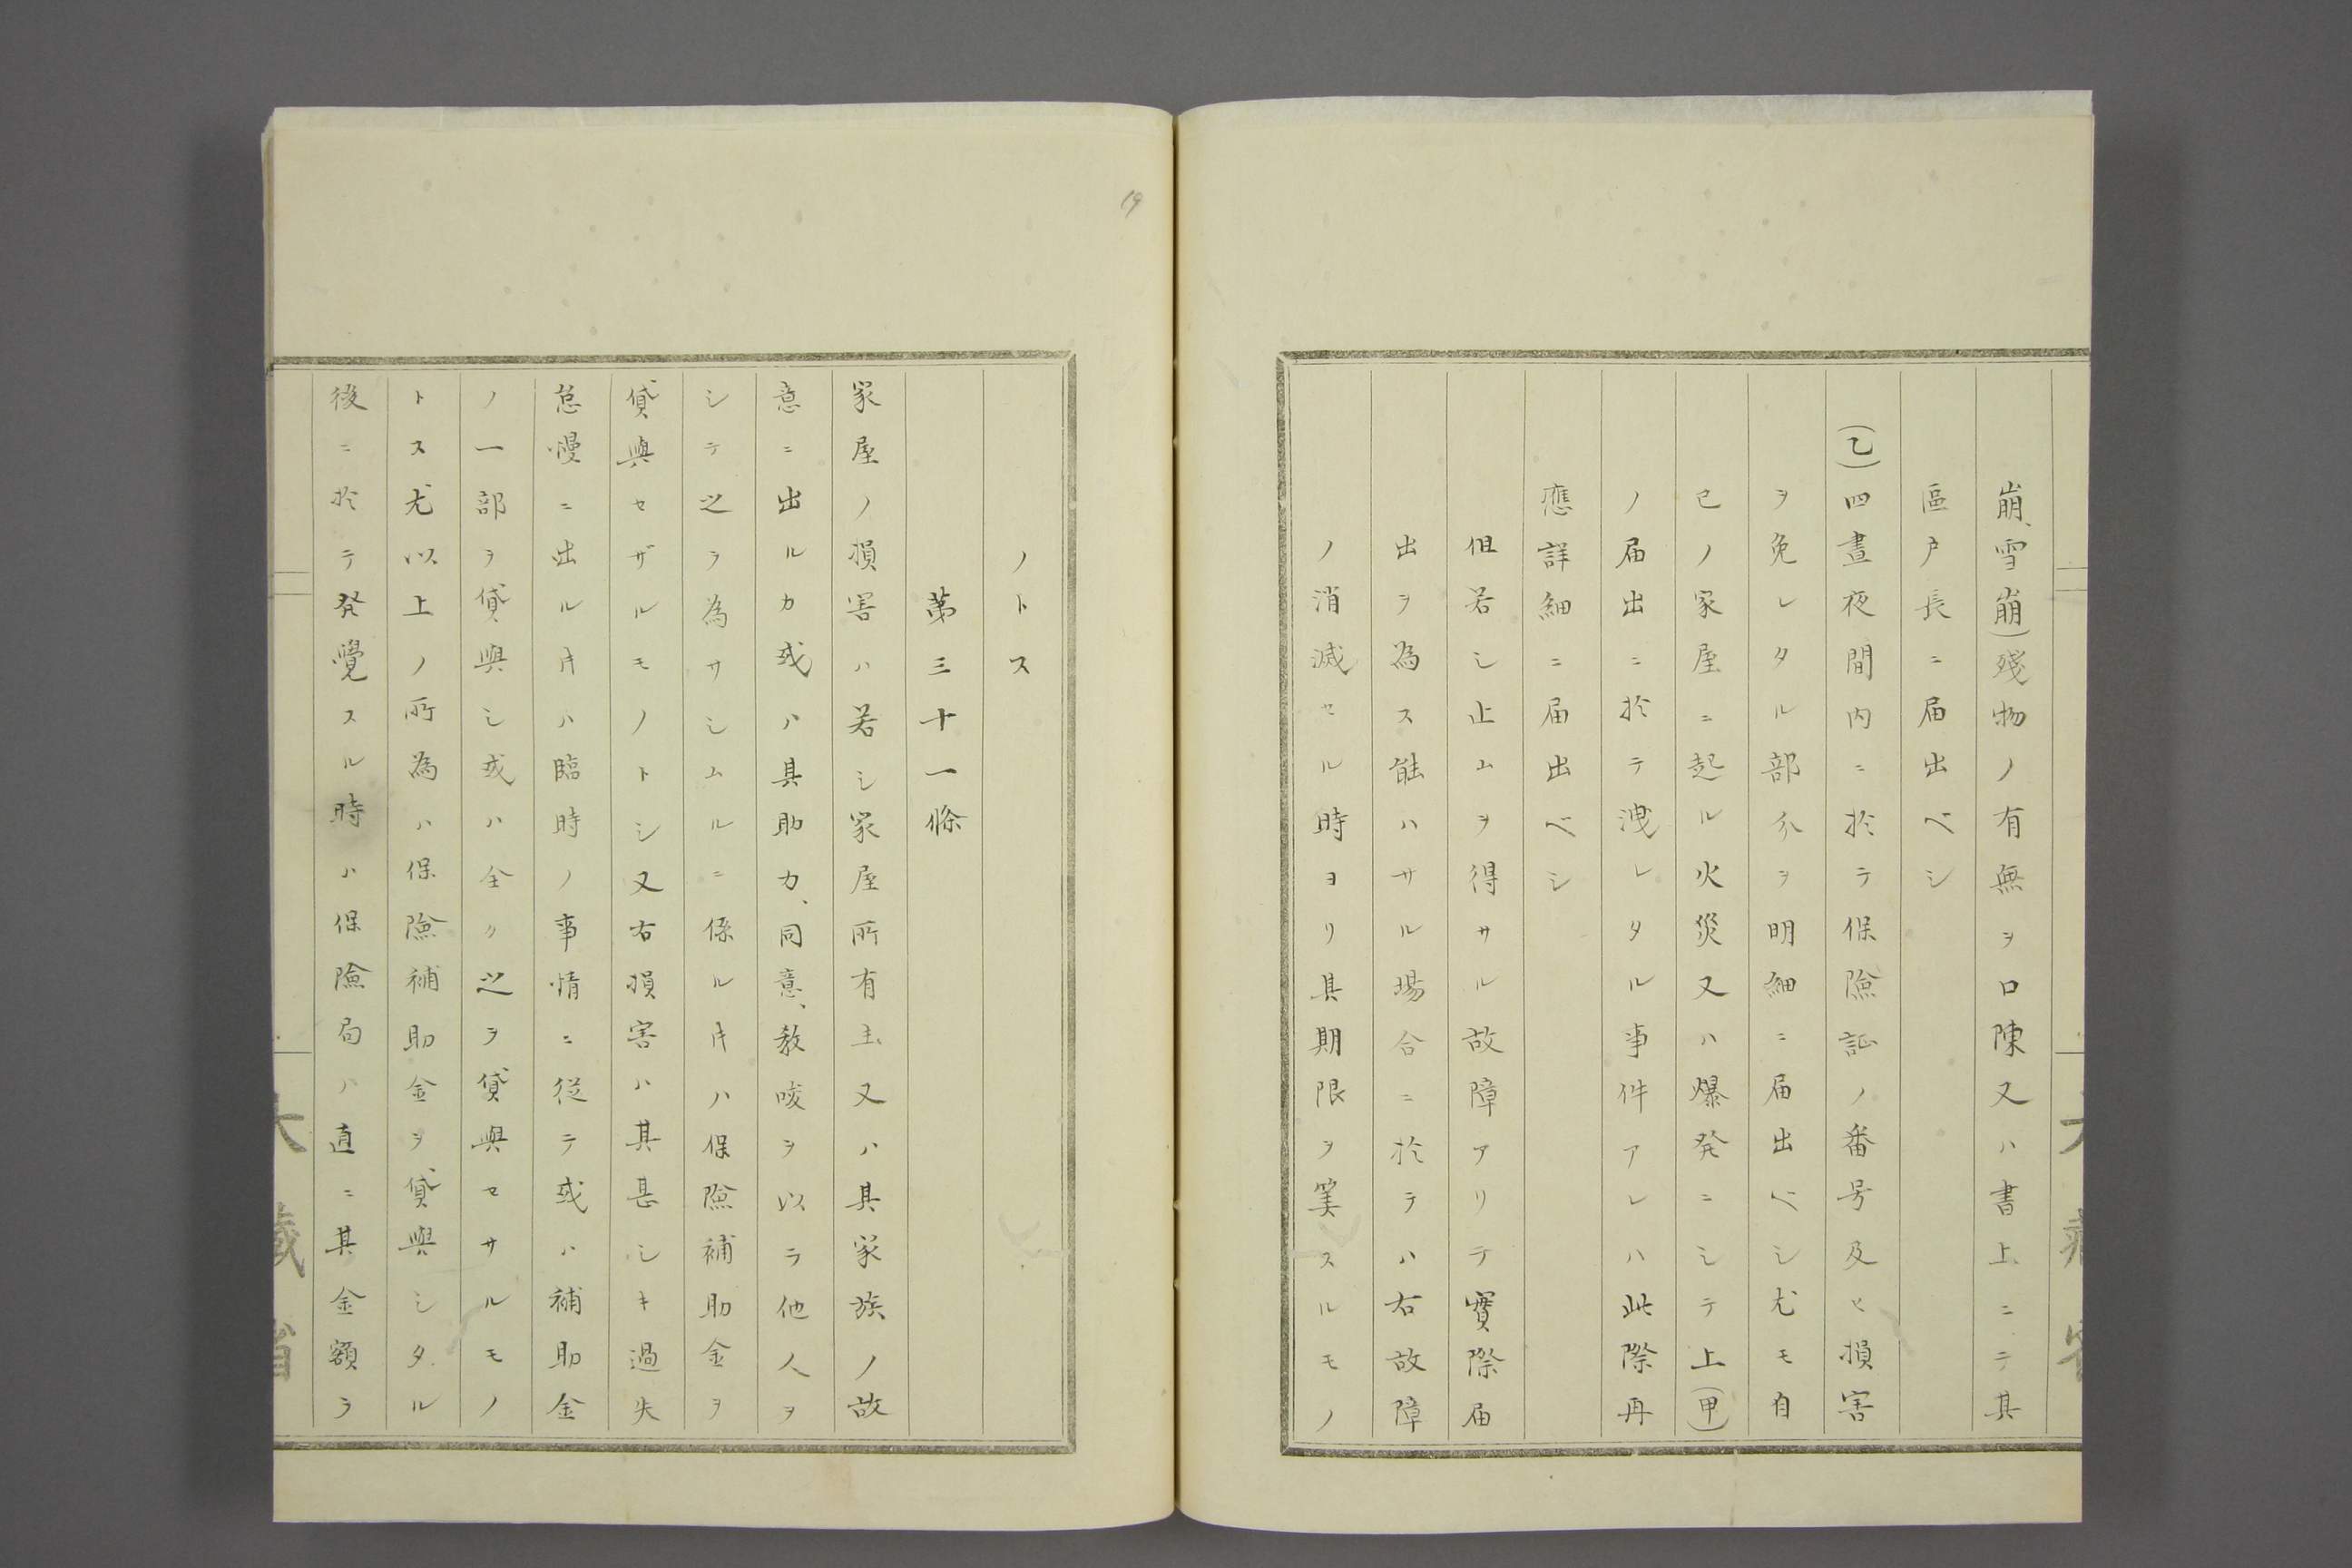 崩、雪崩)殘物ノ有無ヲ口陳又ハ書上ニテ其
區戸長ニ届出ベシ
(乙)四晝夜間内ニ於テ保險証ノ番号及ヒ損害
ヲ免レタル部分ヲ明細ニ届出ベシ尤モ自
已ノ家屋ニ起ル火災又ハ爆発ニシテ上(甲)
ノ届出ニ於テ洩レタル事件アレハ此際再
應詳細ニ届出ベシ
但若シ止ムヲ得サル故障アリテ實際届
出ヲ為ス能ハサル場合ニ於テハ右故障
ノ消滅セル時ヨリ其期限ヲ筭スルモノ
19
ノトス
第三十一條
家屋ノ損害ハ若シ家屋所有主又ハ其家族ノ故
意ニ出ルカ或ハ其助力、同意、教唆ヲ以テ他人ヲ
シテ之ヲ為サシムルニ係ル片ハ保險補助金ヲ
貸與セザルモノトシ又右損害ハ其甚シキ過失
怠慢ニ出ル片ハ臨時ノ事情ニ従テ或ハ補助金
ノ一部ヲ貸與シ或ハ全ク之ヲ貸與セサルモノ
トス尤以上ノ所為ハ保險補助金ヲ貸與シタル
後ニ於テ発覺スル時ハ保險局ハ直ニ其金額ヲ
大藏省